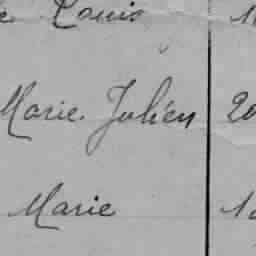 Louis
Marie. Julien 20
Marie